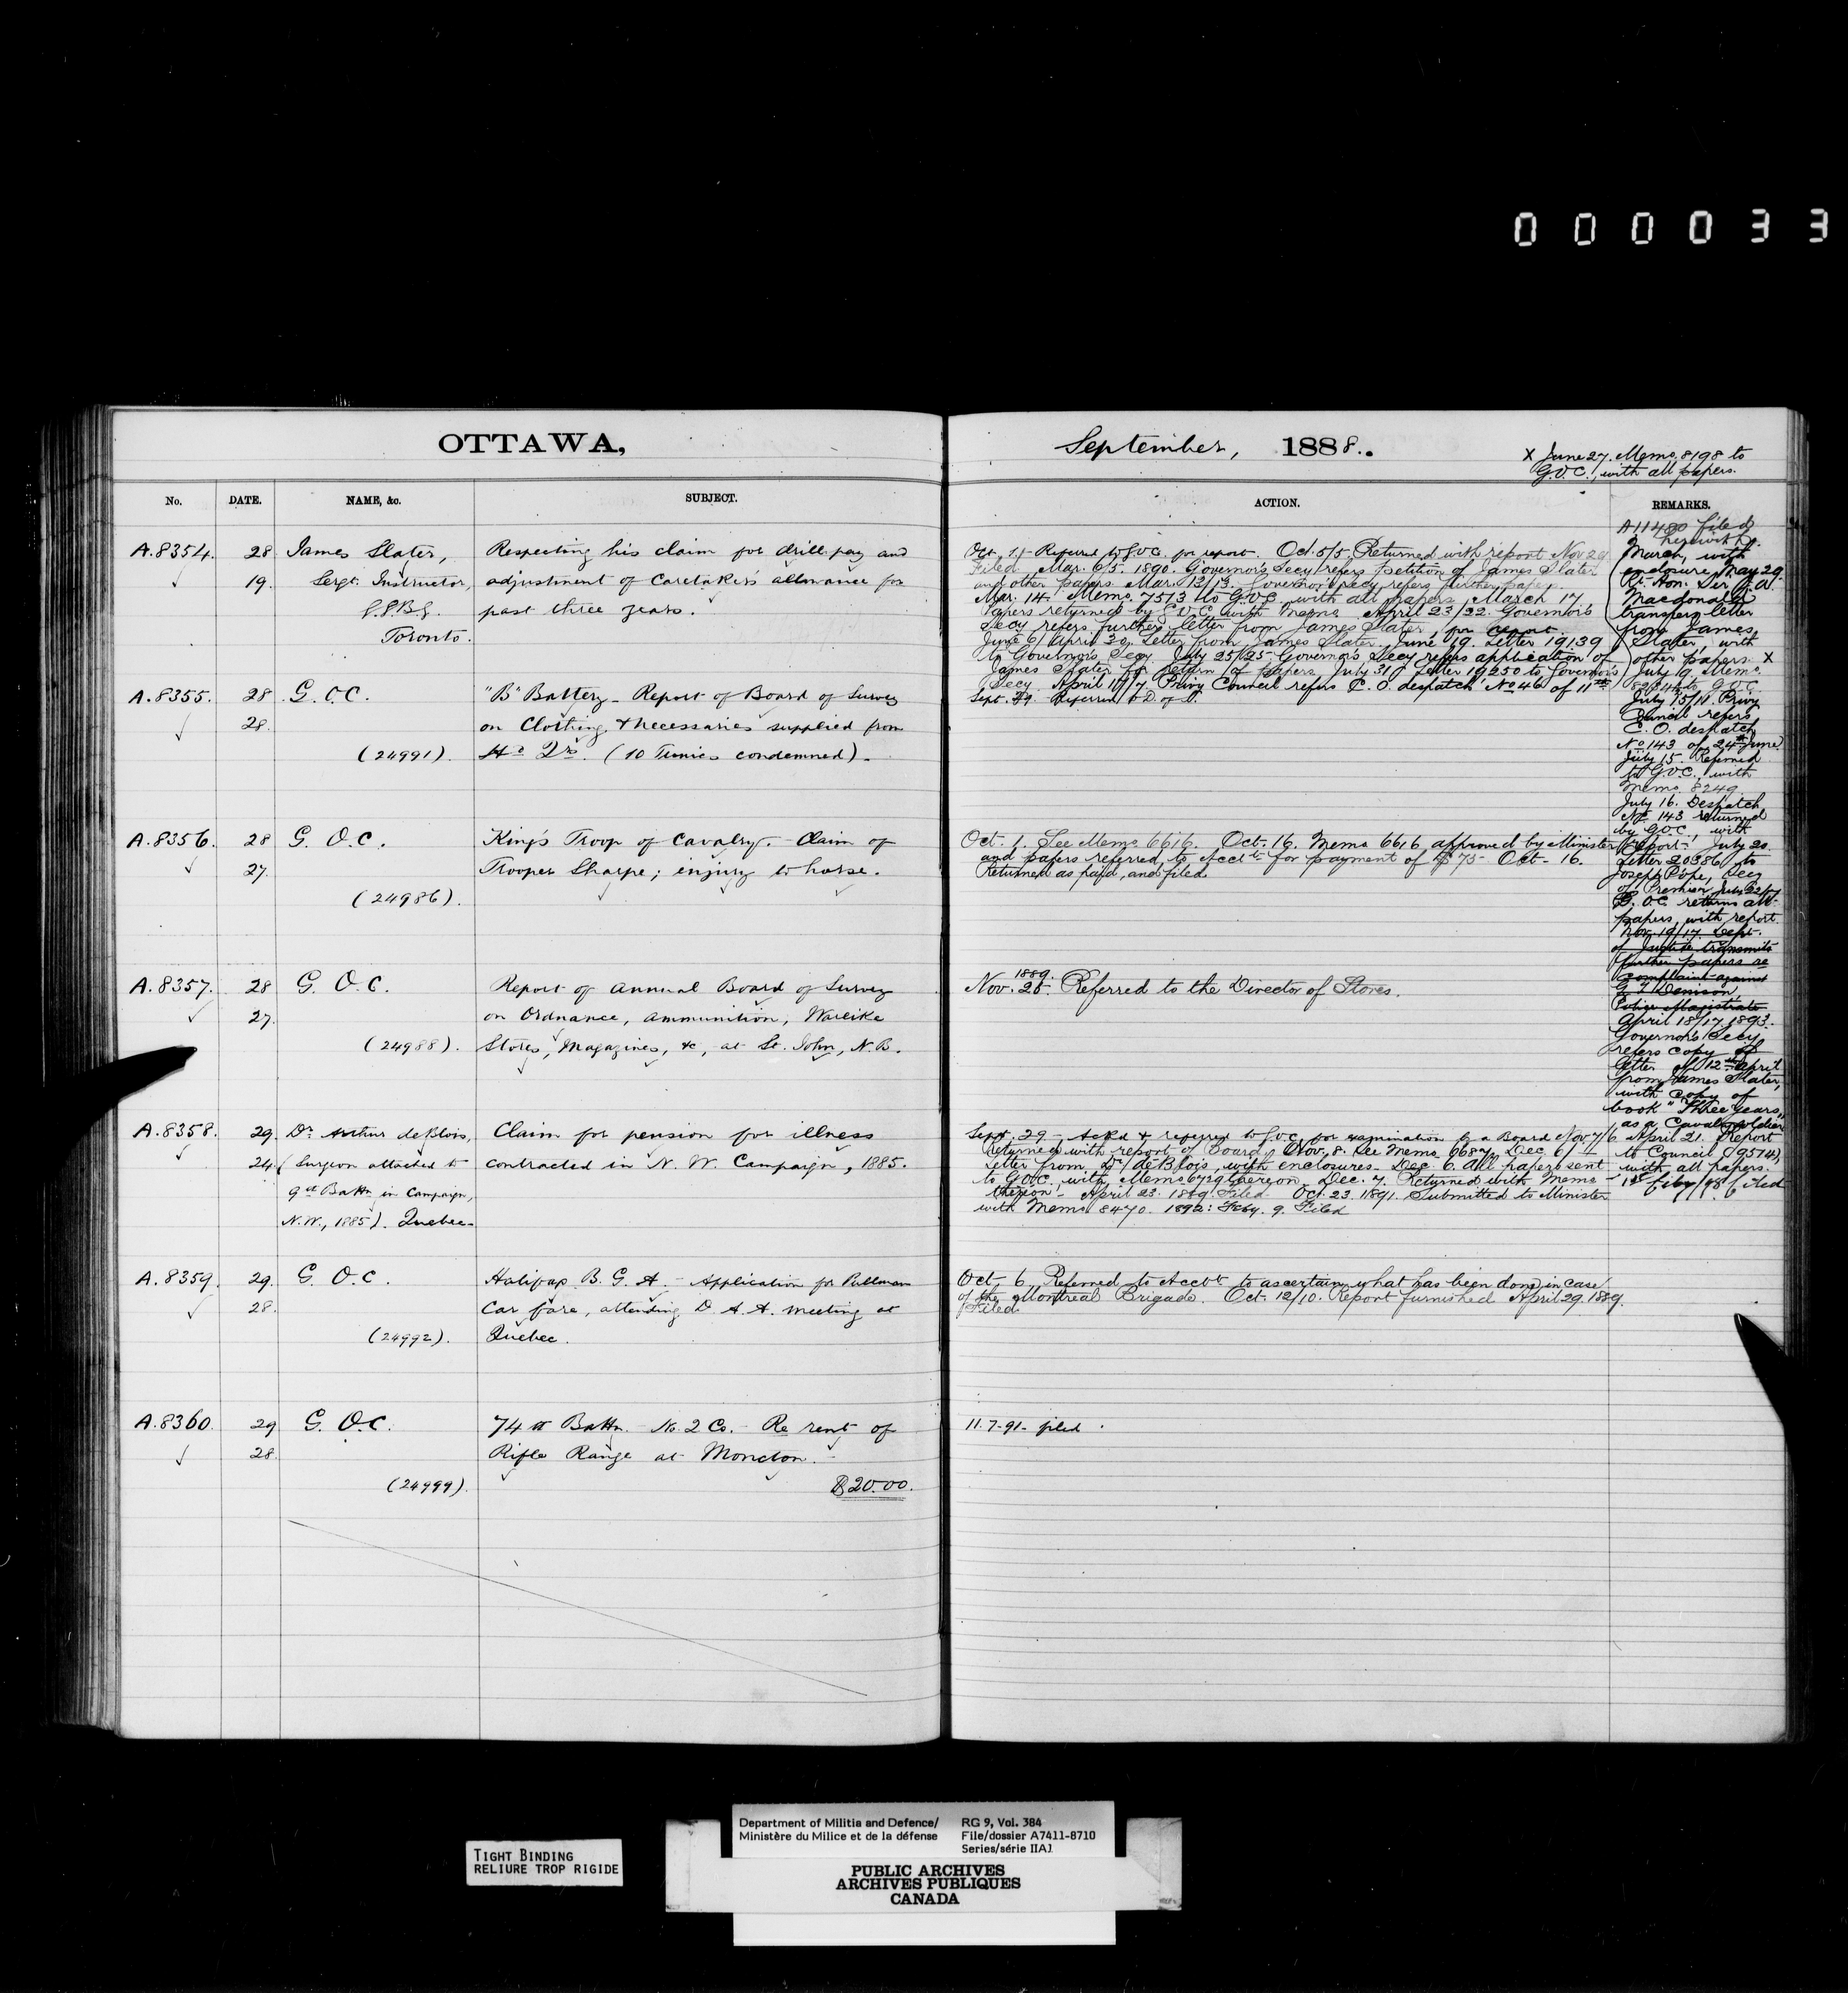 000033
OTTAWA,
No. DATE. NAME, &c. SUBJECT.
A.8354. 28 James Slater, Respecting his claim for drill pay and
19. Sergt. Instructor, adjustment of Caretaker's allowance for
past three years.
Toronto.
A.8355. 28 G.O.C. "B" Battery - Report of Board of Survey
28. on Clothing & necessaries supplied from
(24991). Hd Qrs. (10 Tunics condemned).
A.8356. 28 G.O.C. King's Troop of Cavalry. - Claim of
27. Trooper Sharpe; injury to horse.
(24986).
A.8357. 28 G.O.C. Report of Annual Board of Survey
27. on Ordnance, Ammunition, Warlike
(24988). Stores, Magazines, &c, at St. John, N.B.
A.8358. 29. Dr Arthur deBlois, Claim for pension for illness
24 (Surgeon attached to contracted in N.W. Campaign, 1885.
9th Battn in Campaign,
N.W., 1885). Quebec.
A.8359. 29. G.O.C. Halifax B.G.A. - Application for Pullman
28. Car fare, attending D.A.A. meeting at
(24992). Quebec.
A.8360. 29 G.O.C. 74th Battn. No. 2 Co. - Re rent of
28. Rifle Range at Moncton.
(24999). $20.00.
September, 1888.
X June 27. Memo. 8198 to
G.O.C., with all papers.
ACTION. REMARKS.
Oct. 1. - Referred to G.O.C. for report. Oct. 5/5. Returned with report Nov 29
Filed. Mar. 6/5. 1890. Governor's Secy refers Petition of James Slater
and other papers. Mar. 12/13. Governor's Secy refers further papers.
Mar. 14. Memo. 7513 to G.O.C. with all papers March 17
Papers returned by G.O.C. with memo. April 23/22. Governor's
Secy refers further letter from James Slater, for report.
June 6/April 30, Letter from James Slater. June 19. Letter 19139
to Governor's Secy. July 25/25 - Governor's Secy refers application of
James Slater for return of papers July 31 Letter 19250 to Governor's
Secy April 10/7. Privy Council refers C.O. despatch No 46 of 11th
Sept. Referred to D. of S.
Oct. 1. See Memo 6616. Oct. 16. Memo 6616 approved by Minister
and papers referred to Acctt for payment of $75 - Oct. 16.
Returned as paid, and filed
1889.
Nov. 26. Referred to the Director of Stores.
Sept. 29 - Ackd & referred to G.O.C. for examination by a Board Nov. 7/6
Returned with report of Board. Nov. 8. See Memo 6687. Dec 6/
Letter from Dr deBlois, with enclosures - Dec. 6. All papers sent
to G.O.C. with Memo 6729 thereon. Dec. 7. Returned with Memo
thereon - April 23. 1889. Filed. Oct. 23. 1891. Submitted to Minister
with Memo 8470. 1892: Feby. 9. Filed
Oct 6 Referred to Acctt to ascertain what has been done in case
of the Montreal Brigade. Oct. 12/10. Report furnished April 29. 1889.
Filed.
11.7.91 - filed.
A11480 filed
herewith.
March, with
enclosure, May 29
Rt. Hon. Sir J.A.
Macdonald
transfers letter
from James
Slater, with
other papers. X
July 19. Memo
to G.O.C.
July 15/11 Privy
Council refers
C.O. despatch
No 143 of 24th June
July 15. Referred
to G.O.C. with
Memo. 8249
July 16. Despatch
No. 143 returned
by G.O.C., with
report - July 20.
Letter 20386 to
Joseph Pope, Secy
of Premier July 22/
G.O.C. returns all
papers, with report.
Nov. 19/17. Dept.
of Justice transmits
further papers re
complaint against
G T Denison
Police Magistrate
April 18/17. 1893.
Governor's Secy
refers copy of
letter of 12th April
from James Slater,
with copy of
book "Three years
as a Cavalry soldier"
April 21. Report
to Council (9574),
with all papers.
1st Feby/98 filed
TIGHT BINDING
RELIURE TROP RIGIDE
Department of Militia and Defence/
Ministère du Milice et de la défense
RG 9, Vol. 384
File/dossier A7411-8710
Series/série IIA1
PUBLIC ARCHIVES
ARCHIVES PUBLIQUES
CANADA